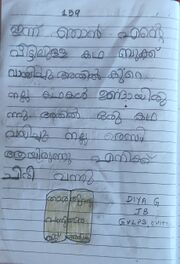 139
ഇന്ന് ഞാൻ എന്റെ
വീട്ടിലുള്ള കഥ ബുക്ക്
വായിച്ചു അതിൽ കുറെ
നല്ല കഥകൾ ഉണ്ടായിരു
ന്നു അതിൽ ഒരു കഥ
വായിച്ചു നല്ല രസം
ആയിരുന്നു എനിക്ക്
ചിരി വന്നു
DIYA G
IB
GVLPS